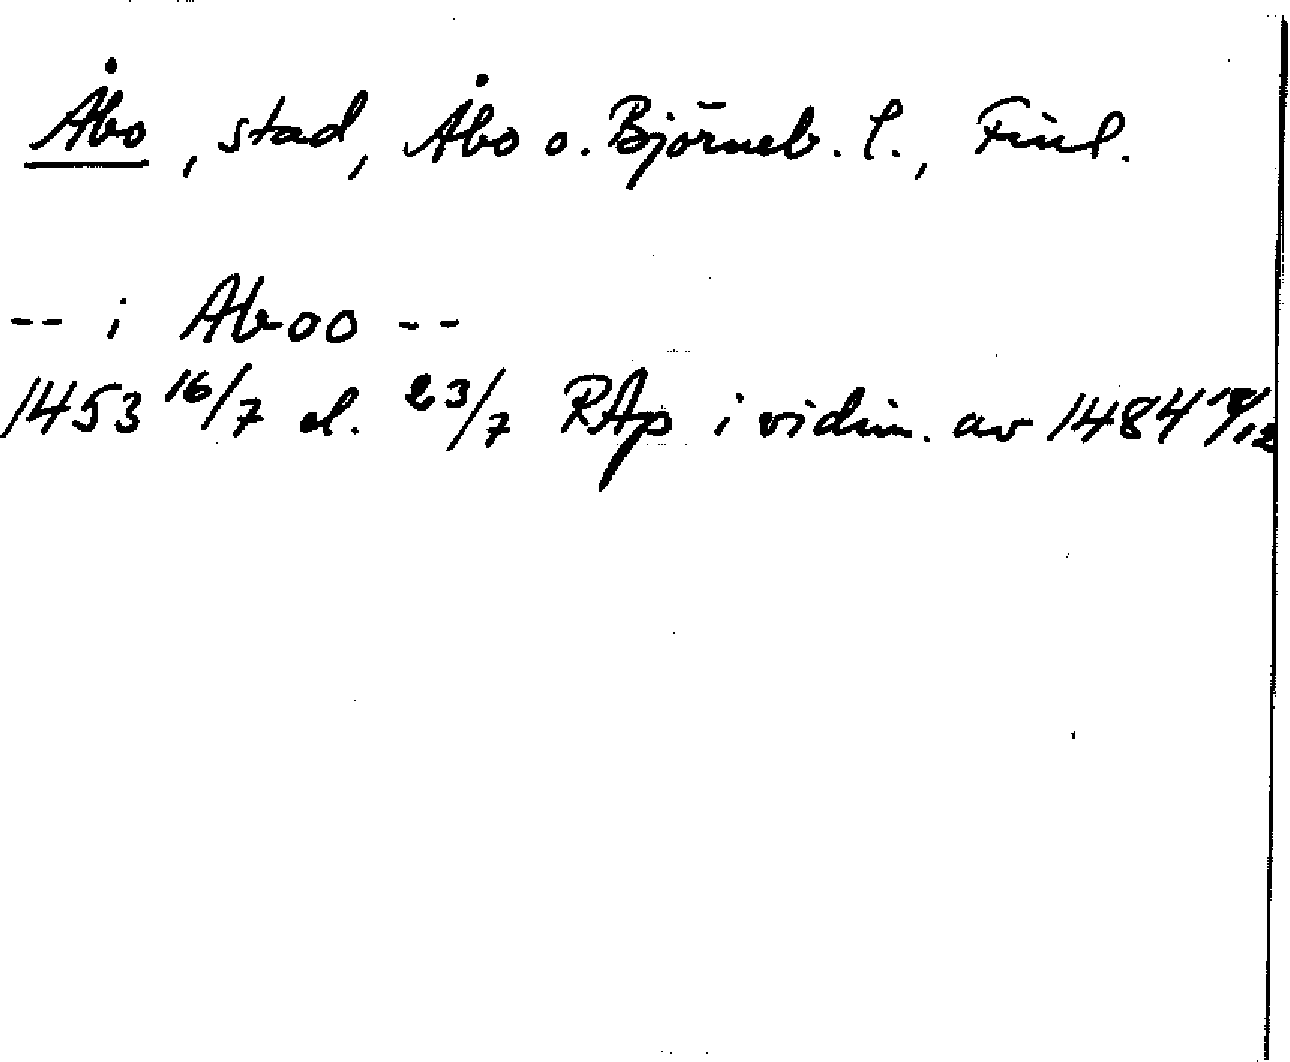 Åbo, stad, Åbo o. Björneb. l., Finl.
-- i Aboo --
1453 16/7 el. 23/7 RAp i vidim. av 1484